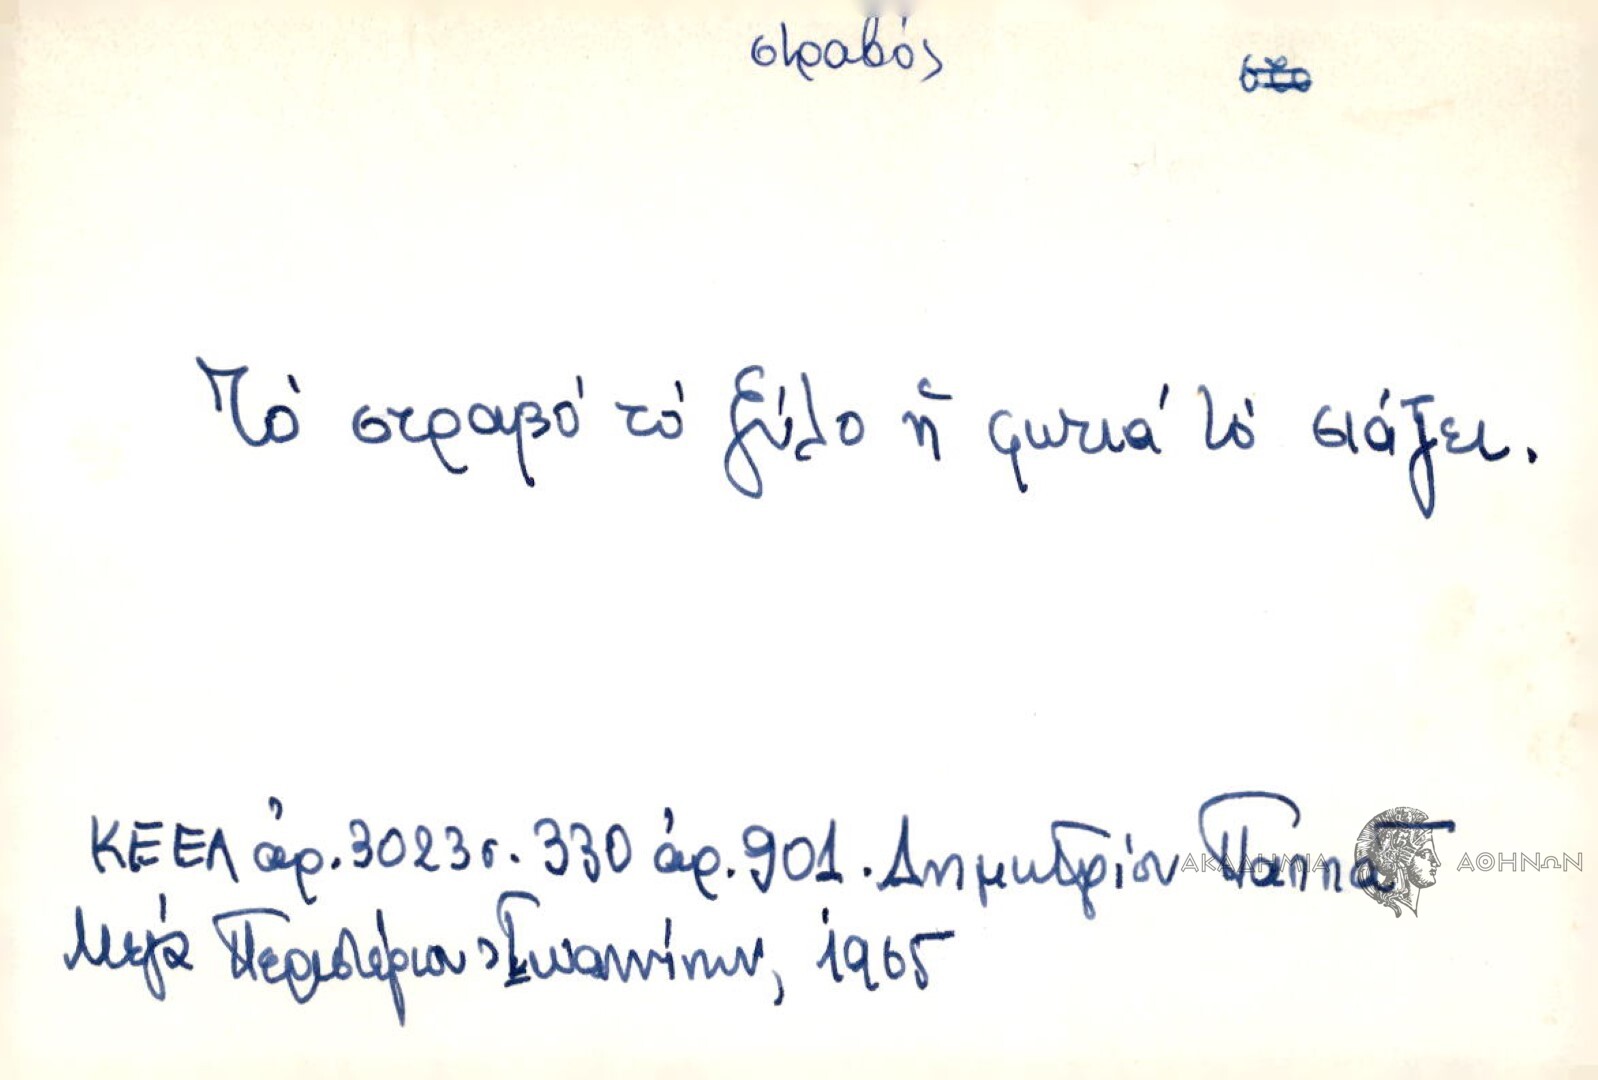 στραβός
Τὸ στραβὸ τὸ ξύλο ἡ φωτιά τὸ σιάζει.
ΚΕΕΛ ἀρ. 3023 σ. 330 ἀρ. 901. Δημητρίου Παππᾶ
ΑΚΑΔΗΜΙΑ ΑΘΗΝΩΝ
Μεγά Περιστέριον Ἰωαννίνων, 1965